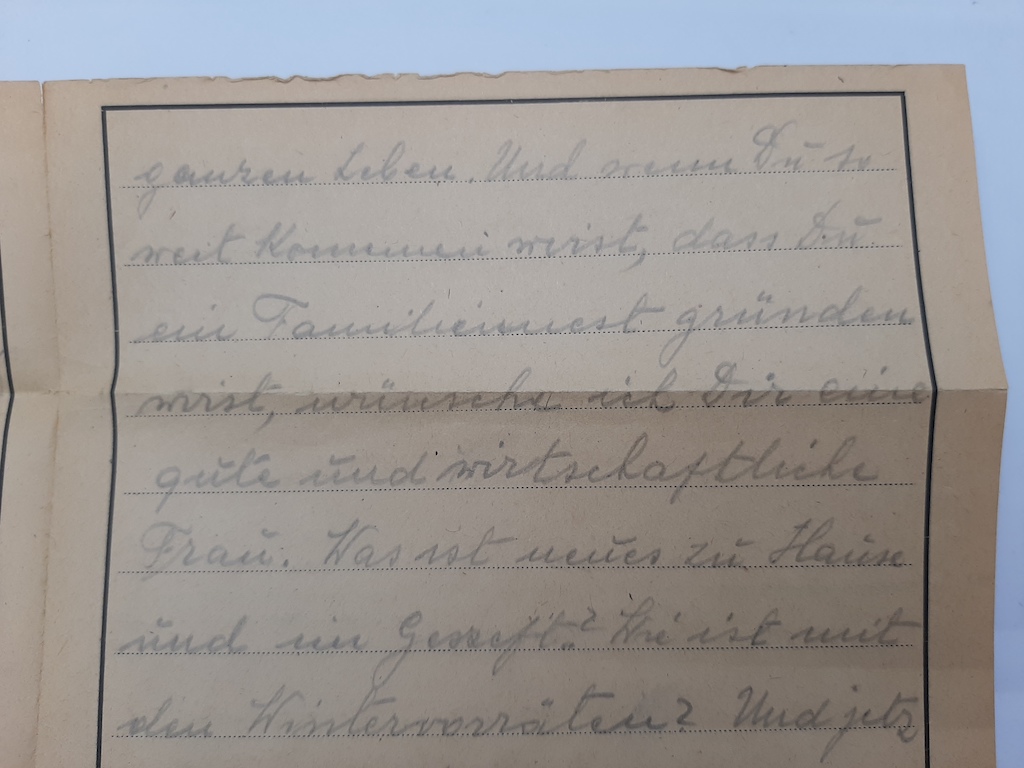 ganzen Leben. Und wenn Du so
weit Kommen wirst, dass Du
ein Familiennest gründen
wirst, wünsche ich Dir eine
gute und wirtschaftliche
Frau. Was ist neues zu Hause
und im Geszeft? Wie ist mit
den Wintervorräten? Und jetz